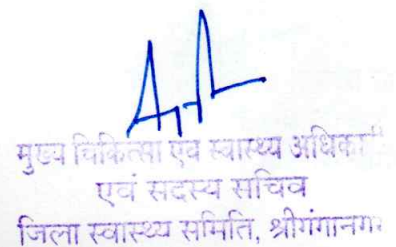 मुख्य चिकित्सा एवं स्वास्थ्य अधिका
एवं सदस्य सचिव
जिला स्वास्थ्य समिति, श्रीगंगानगर